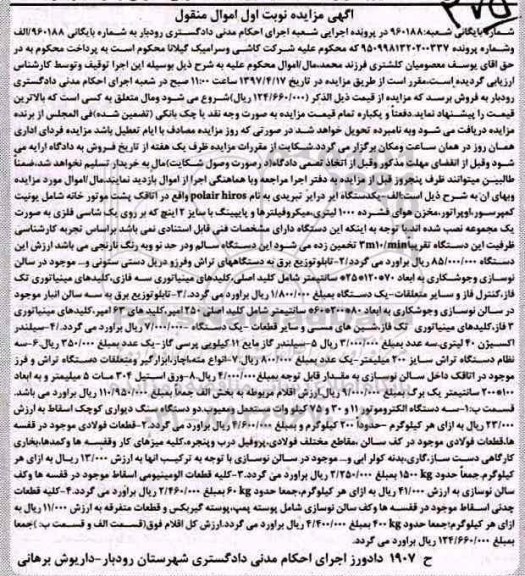 ۳۷۵
آگهی مزایده نوبت اول اموال منقول
شماره بایگانی شعبه:۹۶۰۱۸۸ در پرونده اجرایی شعبه اجرای احکام مدنی دادگستری رودبار به شماره بایگانی ۹۶۰۱۸۸/الف
وشماره پرونده ۹۵۰۹۹۸۱۳۲۰۲۰۰۳۳۷ که محکوم علیه شرکت کاشی وسرامیک گیلانا محکوم است به پرداخت محکوم به در
حق اقای یوسف معصومیان کلشتری فرزند محمد،مال/اموال محکوم علیه به شرح ذیل بوسیله این اجرا توقیف وتوسط کارشناس
ارزیابی گردیده است،مقرر است از طریق مزایده در تاریخ ۱۳۹۷/۴/۱۷ ساعت ۱۱:۰۰ صبح در شعبه اجرای احکام مدنی دادگستری
رودبار به فروش برسد که مزایده از قیمت ذیل الذکر (۱۲۴/۶۶۰/۰۰۰ ریال)شروع می شود ومال متعلق به کسی است که بالاترین
قیمت را پیشنهاد نماید.دفعتاً و یکباره تمام قیمت مزایده به صورت وجه نقد یا چک بانکی (تضمین شده)فی المجلس از برنده
مزایده دریافت می شود وبه نامبرده تحویل خواهد شد در صورتی که روز مزایده مصادف با ایام تعطیل باشد مزایده فردای اداری
همان روز در همان ساعت ومکان برگزار می گردد.شکایت از مقررات مزایده ظرف یک هفته از تاریخ فروش به دادگاه ارایه می
شود وقبل از انقضای مهلت مذکور وقبل از اتخاذ تصمیم دادگاه(در صورت وصول شکایت)مال به خریدار تسلیم نخواهد شد،ضمناً
طالبین میتوانند ظرف پنجروز قبل از مزایده به دفتر اجرا مراجعه وبا هماهنگی اجرا از اموال بازدید نمایند.مال/اموال مورد مزایده
وبهای ان:به شرح ذیل است.الف-یکدستگاه ایر درایر تبریدی به نام polair hiros واقع در اتاقک پشت موتور خانه شامل یونیت
کمپرسور،اوپراتور،مخزن هوای فشرده ۱۰۰۰ لیتری،میکروفیلترها و پایپینگ با سایز ۲ اینچ که بر روی یک شاسی فلزی به صورت
یک مجموعه نصب شده است.با توجه به اینکه این دستگاه دارای مشخصات فنی قابل استنادی نمی باشد براساس تجربه کارشناسی
ظرفیت این دستگاه تقریباً ۳m۱۰/min تخمین زده می شود این دستگاه سالم ودر حد نو وبه رنگ نارنجی می باشد ارزش این
دستگاه ۸۵/۰۰۰/۰۰۰ ریال برآورد می گردد/۲-تابلوتوزیع برق به دستگاههای تراش وفرزو دریل دستی ستونی و... موجود در سالن
نوسازی وجوشکاری به ابعاد ۷۰*۱۲۰*۲۵ سانتیمتر شامل کلید اصلی،کلیدهای مینیاتوری سه فازی،کلیدهای مینیاتوری تک
فاز،کنترل فاز و سایر متعلقات-یک دستگاه بمبلغ ۱/۸۰۰/۰۰۰ ریال برآورد می گردد./۳-تابلوتوزیع برق به سه سالن انبار موجود
در سالن نوسازی وجوشکاری به ابعاد ۸۰*۲۰۰*۶۰ سانتیمتر شامل کلید اصلی ۲۵۰ امپر،کلید های ۶۳ امپر،کلیدهای مینیاتوری
۳ فاز،کلیدهای مینیاتوری تک فاز،شین های مسی و سایر قطعات -یک دستگاه -۷/۰۰۰/۰۰۰ ریال برآورد می گردد./۴-سیلندر
اکسیژن ۴۰ لیتری.سه عدد بمبلغ ۳/۰۰۰/۰۰۰ ریال ۵-سیلندر گاز مایع ۱۱ کیلویی پرسی گاز-یک عدد بمبلغ ۳۵۰/۰۰۰ ریال.۶-سه
نظام دستگاه تراش سایز ۲۰۰ میلیمتر-یک عدد بمبلغ ۸۰۰/۰۰۰ ریال ۷-انواع مته،آچار،ابزارگیر ومتعلقات دستگاه تراش و فرز
موجود در اتاقک داخل سالن نوسازی به مقدار قابل توجه بمبلغ ۴/۰۰۰/۰۰۰ ریال.۸-ورق استیل ۳۰۴ مات ۵ میلیمتر و به ابعاد
۱۰۰*۲۰۰ سانتیمتر یک برگ بمبلغ ۹/۰۰۰/۰۰۰ ریال ارزش اقلام مربوطه به بخش الف جمعاً بمبلغ ۱۱۰/۹۵۰/۰۰۰ ریال برآورد می باشد.
قسمت ب:۱-سه دستگاه الکتروموتور ۱۱و ۳۰ و ۷۵ کیلو وات مستعمل ومعیوب دو دستگاه سنگ دیواری کوچک اسقاط به ارزش
۲۳/۰۰۰ ریال از هر کیلوگرم -حدوداً ۲۰۰ کیلوگرم و بمبلغ ۴/۶۰۰/۰۰۰ ریال و برآورد می گردد.۲-قطعات فولادی موجود در قفسه
ها،قطعات فولادی موجود در کف سالن ،مقاطع مختلف فولادی،پروفیل درب وپنجره،کلیه میزهای کار وقفسه ها وکمدها،بخاری
کارگاهی دست ساز،گاری،بدنه کولر ابی و...موجود در سالن نوسازی با توجه به ترکیب انها به ارزش ۱۳/۰۰۰ ریال به ازای هر
کیلوگرم جمعاً حدود kg ۱۵۰ بمبلغ ۲/۲۵۰/۰۰۰ ریال برآورد می گردد.۳-کلیه قطعات الومینیومی اسقاط موجود در قفسه ها وکف
سالن نوسازی به ارزش ۴۱/۰۰۰ ریال به ازای هر کیلوگرم،جمعاً حدود kg ۶۰ بمبلغ ۲/۴۶۰/۰۰۰ ریال برآورد می گردد.۴-کلیه قطعات
چدنی اسقاط موجود در قفسه ها وکف سالن نوسازی شامل پوسته پمپ،پوسته گیربکس و قطعات متفرقه به ارزش ۱۱/۰۰۰ ریال به
ازای هر کیلوگرم؛جمعاً حدود kg ۴۰۰ بمبلغ ۴/۴۰۰/۰۰۰ ریال برآورد می گردد.ارزش کل اقلام فوق(قسمت الف و قسمت ب :)جمعاً
بمبلغ ۱۲۴/۶۶۰/۰۰۰ ریال برآورد گردد.
ح ۱۹۰۷ دادورز اجرای احکام مدنی دادگستری شهرستان رودبار-داریوش برهانی